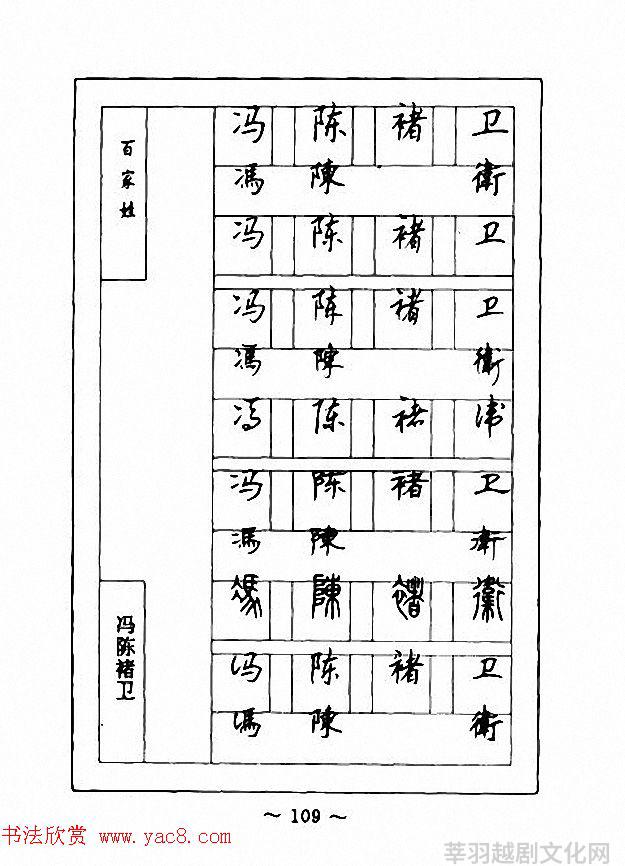 百家姓
冯 陈 褚 卫
馮 陳 衛
冯 陈 褚 卫
冯 陈 褚 卫
馮 陳 衛
冯 陈 褚 卫
冯 陈 褚 卫
馮 陳 衛
馮 陳 褚 衛
冯 陈 褚 卫
馮 陳 衛
冯陈褚卫
~ 109 ~
书法欣赏 www.yac8.com
莘羽越剧文化网